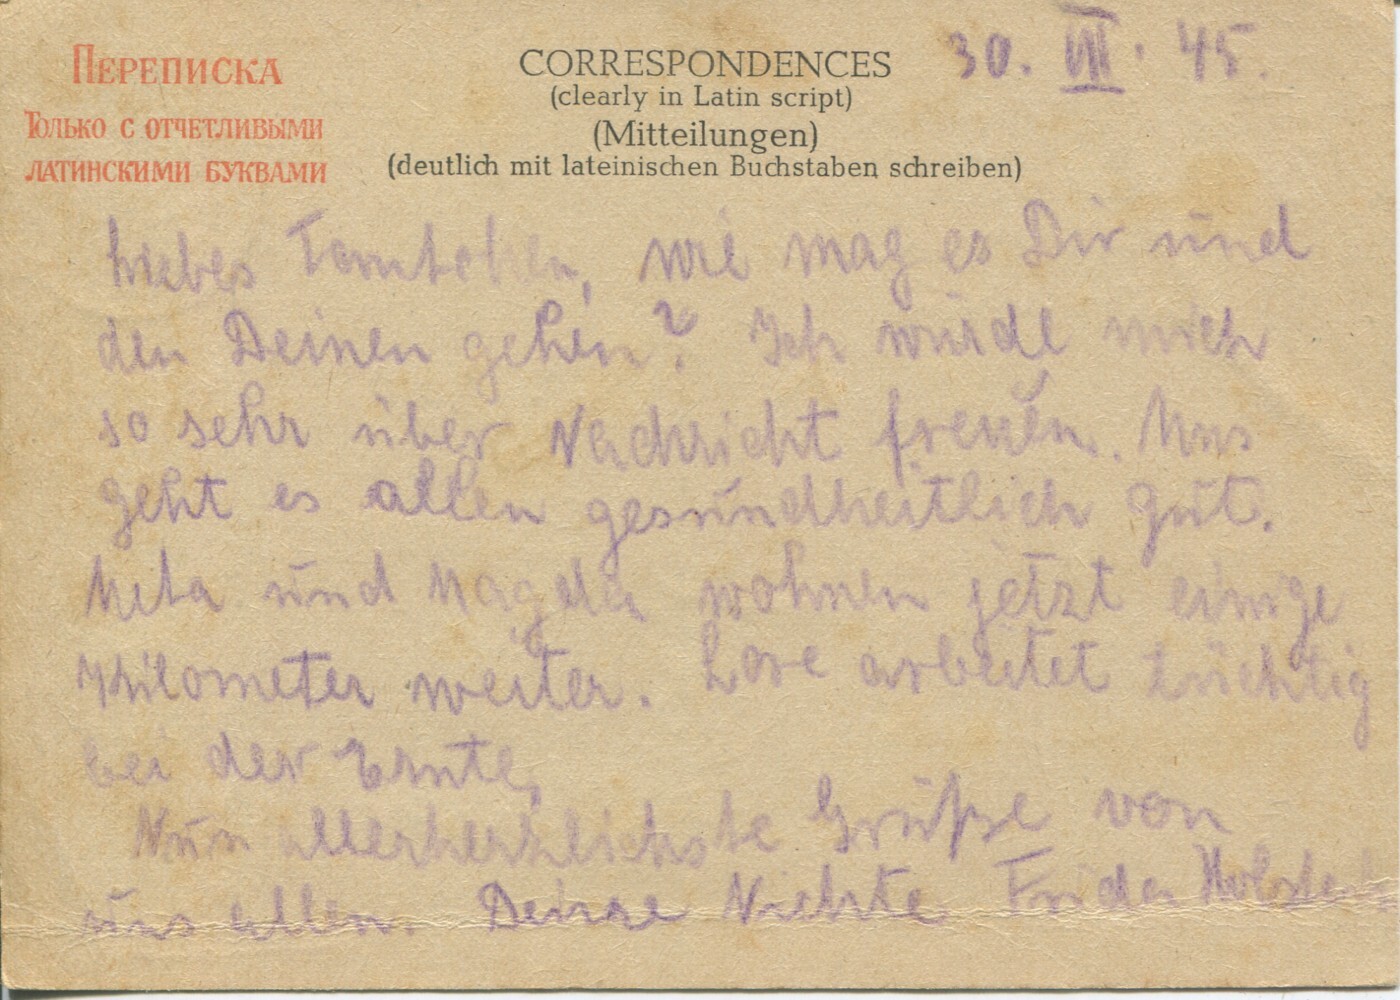 ПЕРЕПИСКА
ТОЛЬКО С ОТЧЕТЛИВЫМИ
ЛАТИНСКИМИ БУКВАМИ
CORRESPONDENCES
(clearly in Latin script)
(Mitteilungen)
(deutlich mit lateinischen Buchstaben schreiben)
30. VII. 45.
Liebes Tantchen, wie mag es Dir und
den Deinen gehen? Ich würde mich
so sehr über Nachricht freuen. Uns
geht es allen gesundheitlich gut.
Meta und Magda wohnen jetzt einige
Kilometer weiter. Lore arbeitet tüchtig
bei der Ernte,
Nun allerherzlichste Grüße von
uns allen. Deine Nichte Frida